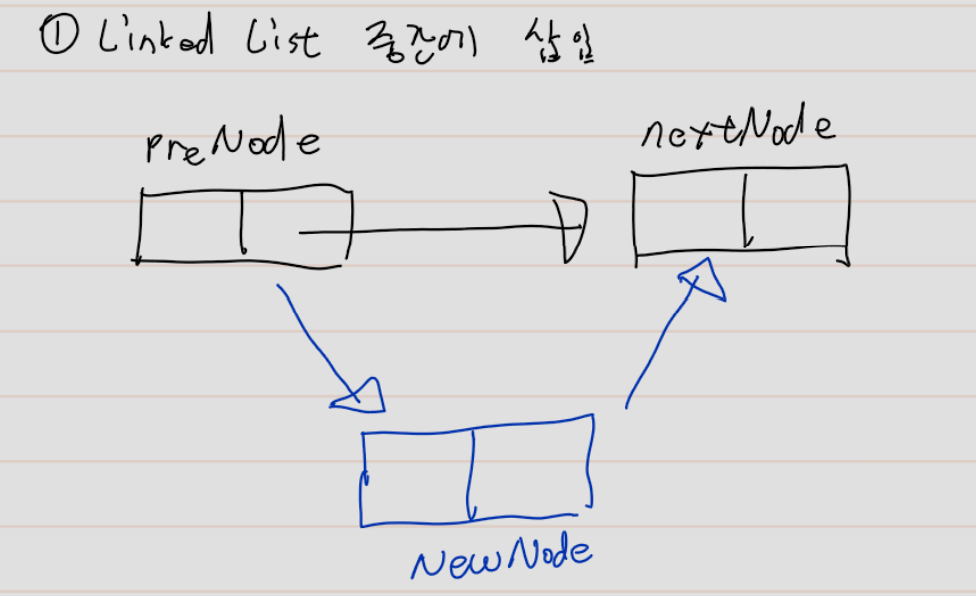 ① Linked List 중간에 삽입
preNode
nextNode
NewNode